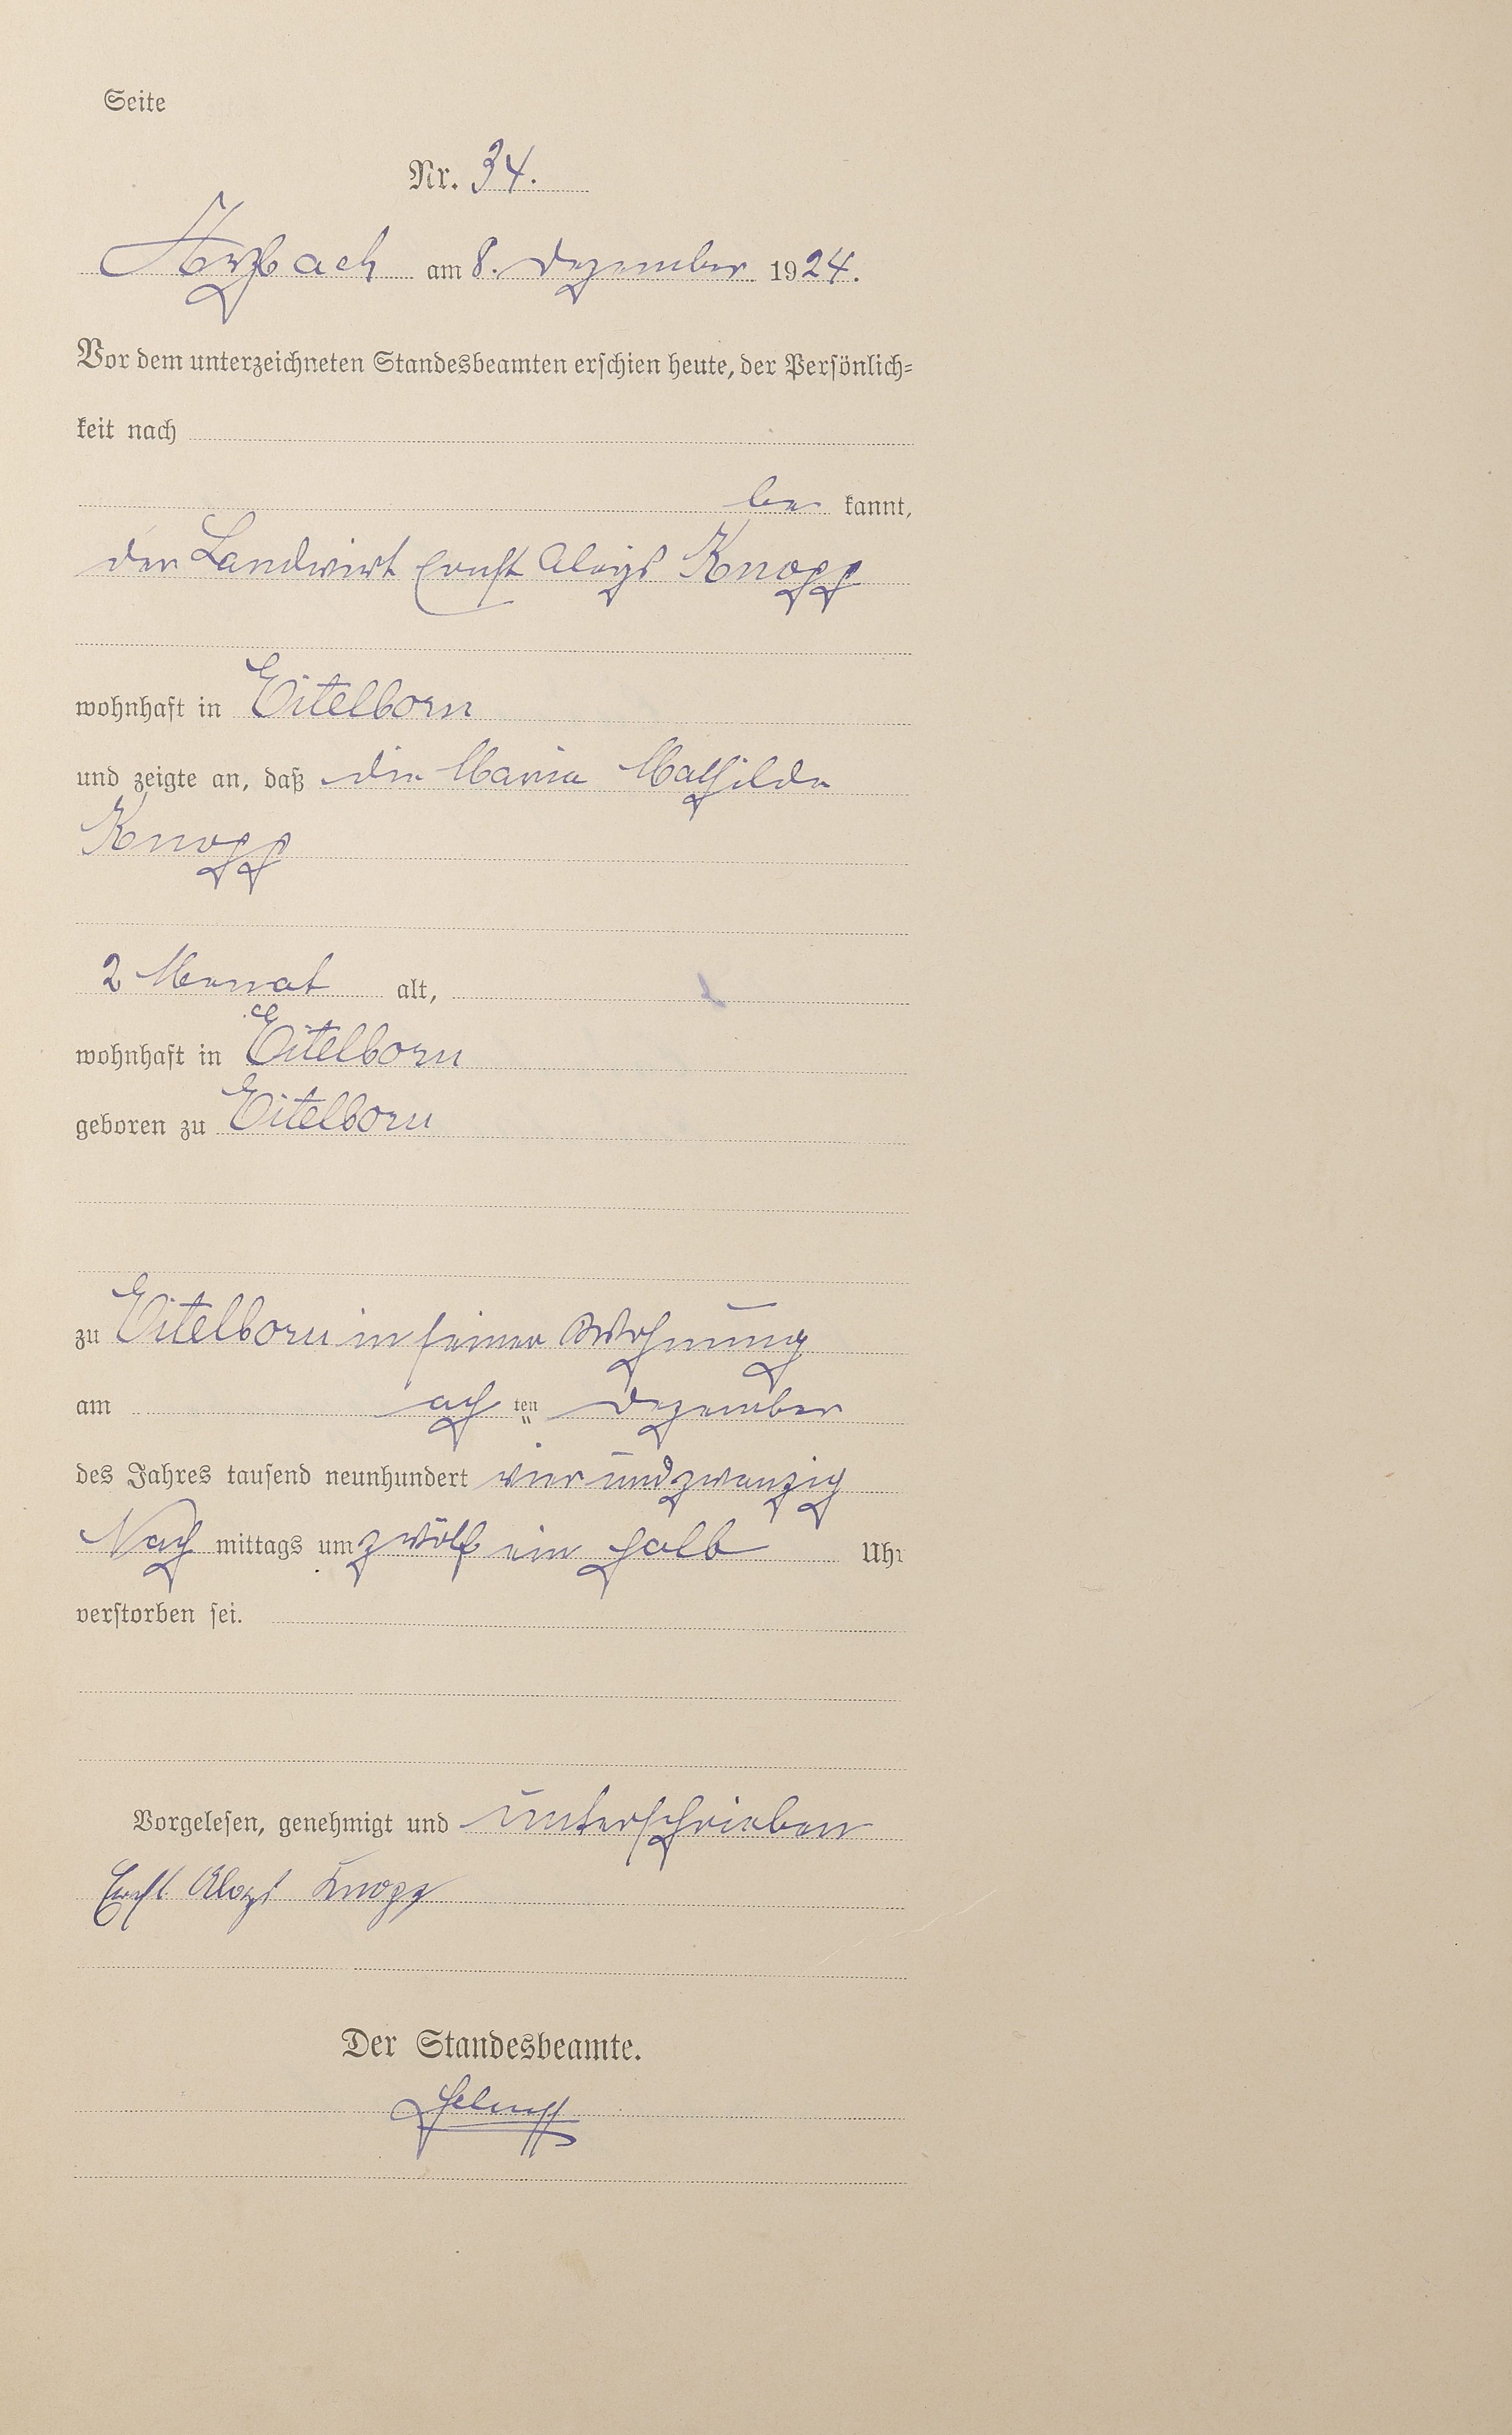 Seite
Nr. 34.
Arzbach am 8. Dezember 1924.
Vor dem unterzeichneten Standesbeamten erschien heute, der Persönlich-
keit nach
be kannt,
der Landwirt Ernst Aloys Knopp
wohnhaft in Eitelborn
und zeigte an, daß die Maria Mathilde
Knopp
2 Monat alt,
wohnhaft in Eitelborn
geboren zu Eitelborn
zu Eitelborn in seiner Wohnung
am ach ten Dezember
des Jahres tausend neunhundert vierundzwanzig
Nach mittags um zwölf ein halb Uhr
verstorben sei.
Vorgelesen, genehmigt und unterschrieben
Ernst Aloys Knopp
Der Standesbeamte.